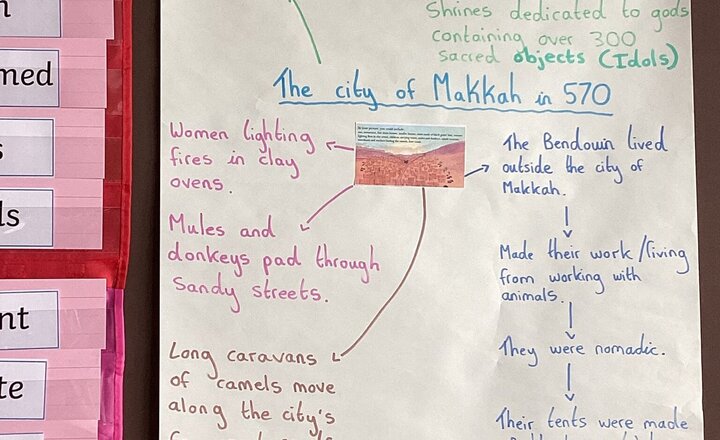 n
med
s
ls
nt
te
Shrines dedicated to gods
containing over 300
sacred objects (Idols)
The city of Makkah in 570
Women lighting
fires in clay
ovens.
Mules and
donkeys pad through
Sandy streets.
Long caravans
of camels move
along the city's
The Bendouin lived
outside the city of
Makkah.
Made their work/living
from working with
animals.
They were nomadic.
Their tents were made